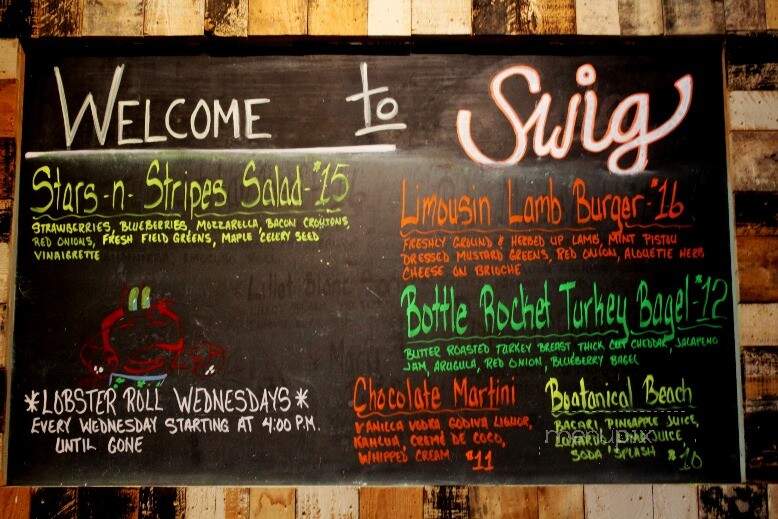 Welcome to Swig
Stars-n-Stripes Salad-$15
Strawberries, Blueberries, Mozzarella, Bacon Croutons,
Red Onions, Fresh Field Greens, Maple Celery Seed
Vinaigrette
Limousin Lamb Burger-$16
Freshly Ground & Herbed Up Lamb, Mint Pistou
Dressed Mustard Greens, Red Onion, Alouette Herb
Cheese on Brioche
Bottle Rocket Turkey Bagel-$12
Butter Roasted Turkey Breast, Thick Cut Cheddar, Jalapeno
Jam, Arugula, Red Onion, Blueberry Bagel
*Lobster Roll Wednesdays*
Every Wednesday Starting at 4:00 P.M.
Until Gone
Chocolate Martini
Vanilla Vodka Godiva Liquor,
Kahlua, Creme de Coco,
Whipped Cream $11
Boatanical Beach
Bacari, Pineapple Juice,
Juice,
Soda Splash $10
menupix